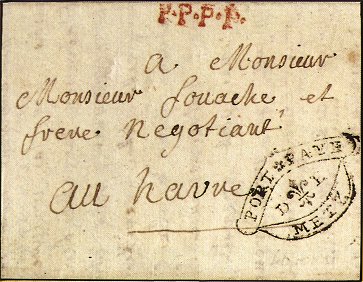 P.P.P.P.
a Monsieur
Monsieur fouache et
frere Negotiant
au havre
PORT PAYE
D L
METZ